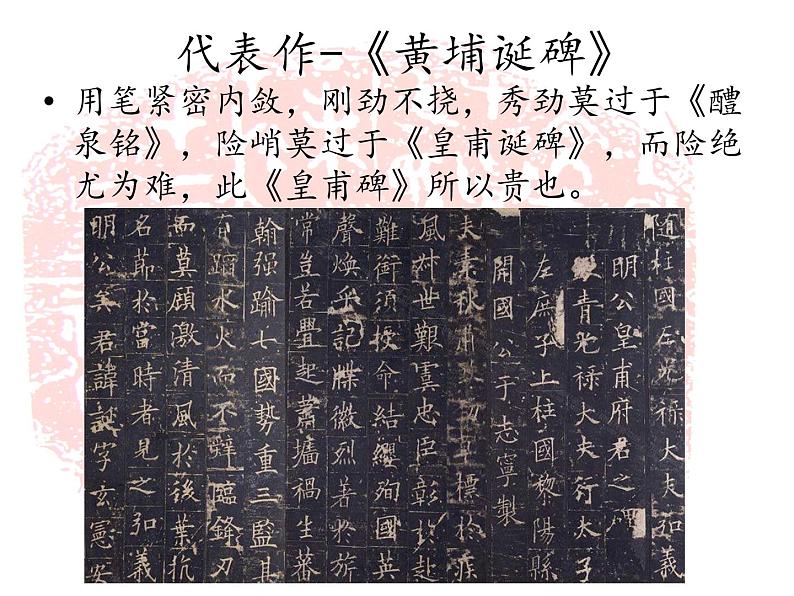 代表作-《黄埔诞碑》
• 用笔紧密内敛，刚劲不挠，秀劲莫过于《醴
泉铭》，险峭莫过于《皇甫诞碑》，而险绝
尤为难，此《皇甫碑》所以贵也。
随柱國左光禄大夫弘義
明公皇甫府君之碑
青光禄大夫行太子
左庶子上柱國黎陽縣
開國公于志寧製
夫素秋肅
風对世艱虞忠臣彰於赴
難銜須授命結纓殉國英
聲煥乎記牒徽烈著於旂
常豈若釁起蕭墻禍生蕃
翰强踰七國勢重三監其
有蹈水火而不辭臨鋒刃
而莫顧激清風於後葉抗
名節於當時者見之弘義
明公矣君諱誕字玄憲安